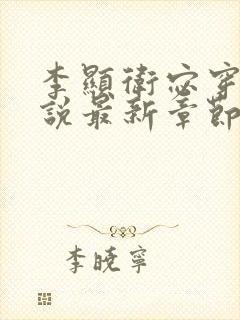 李顯衛宓穿
說最新章節
李曉寧